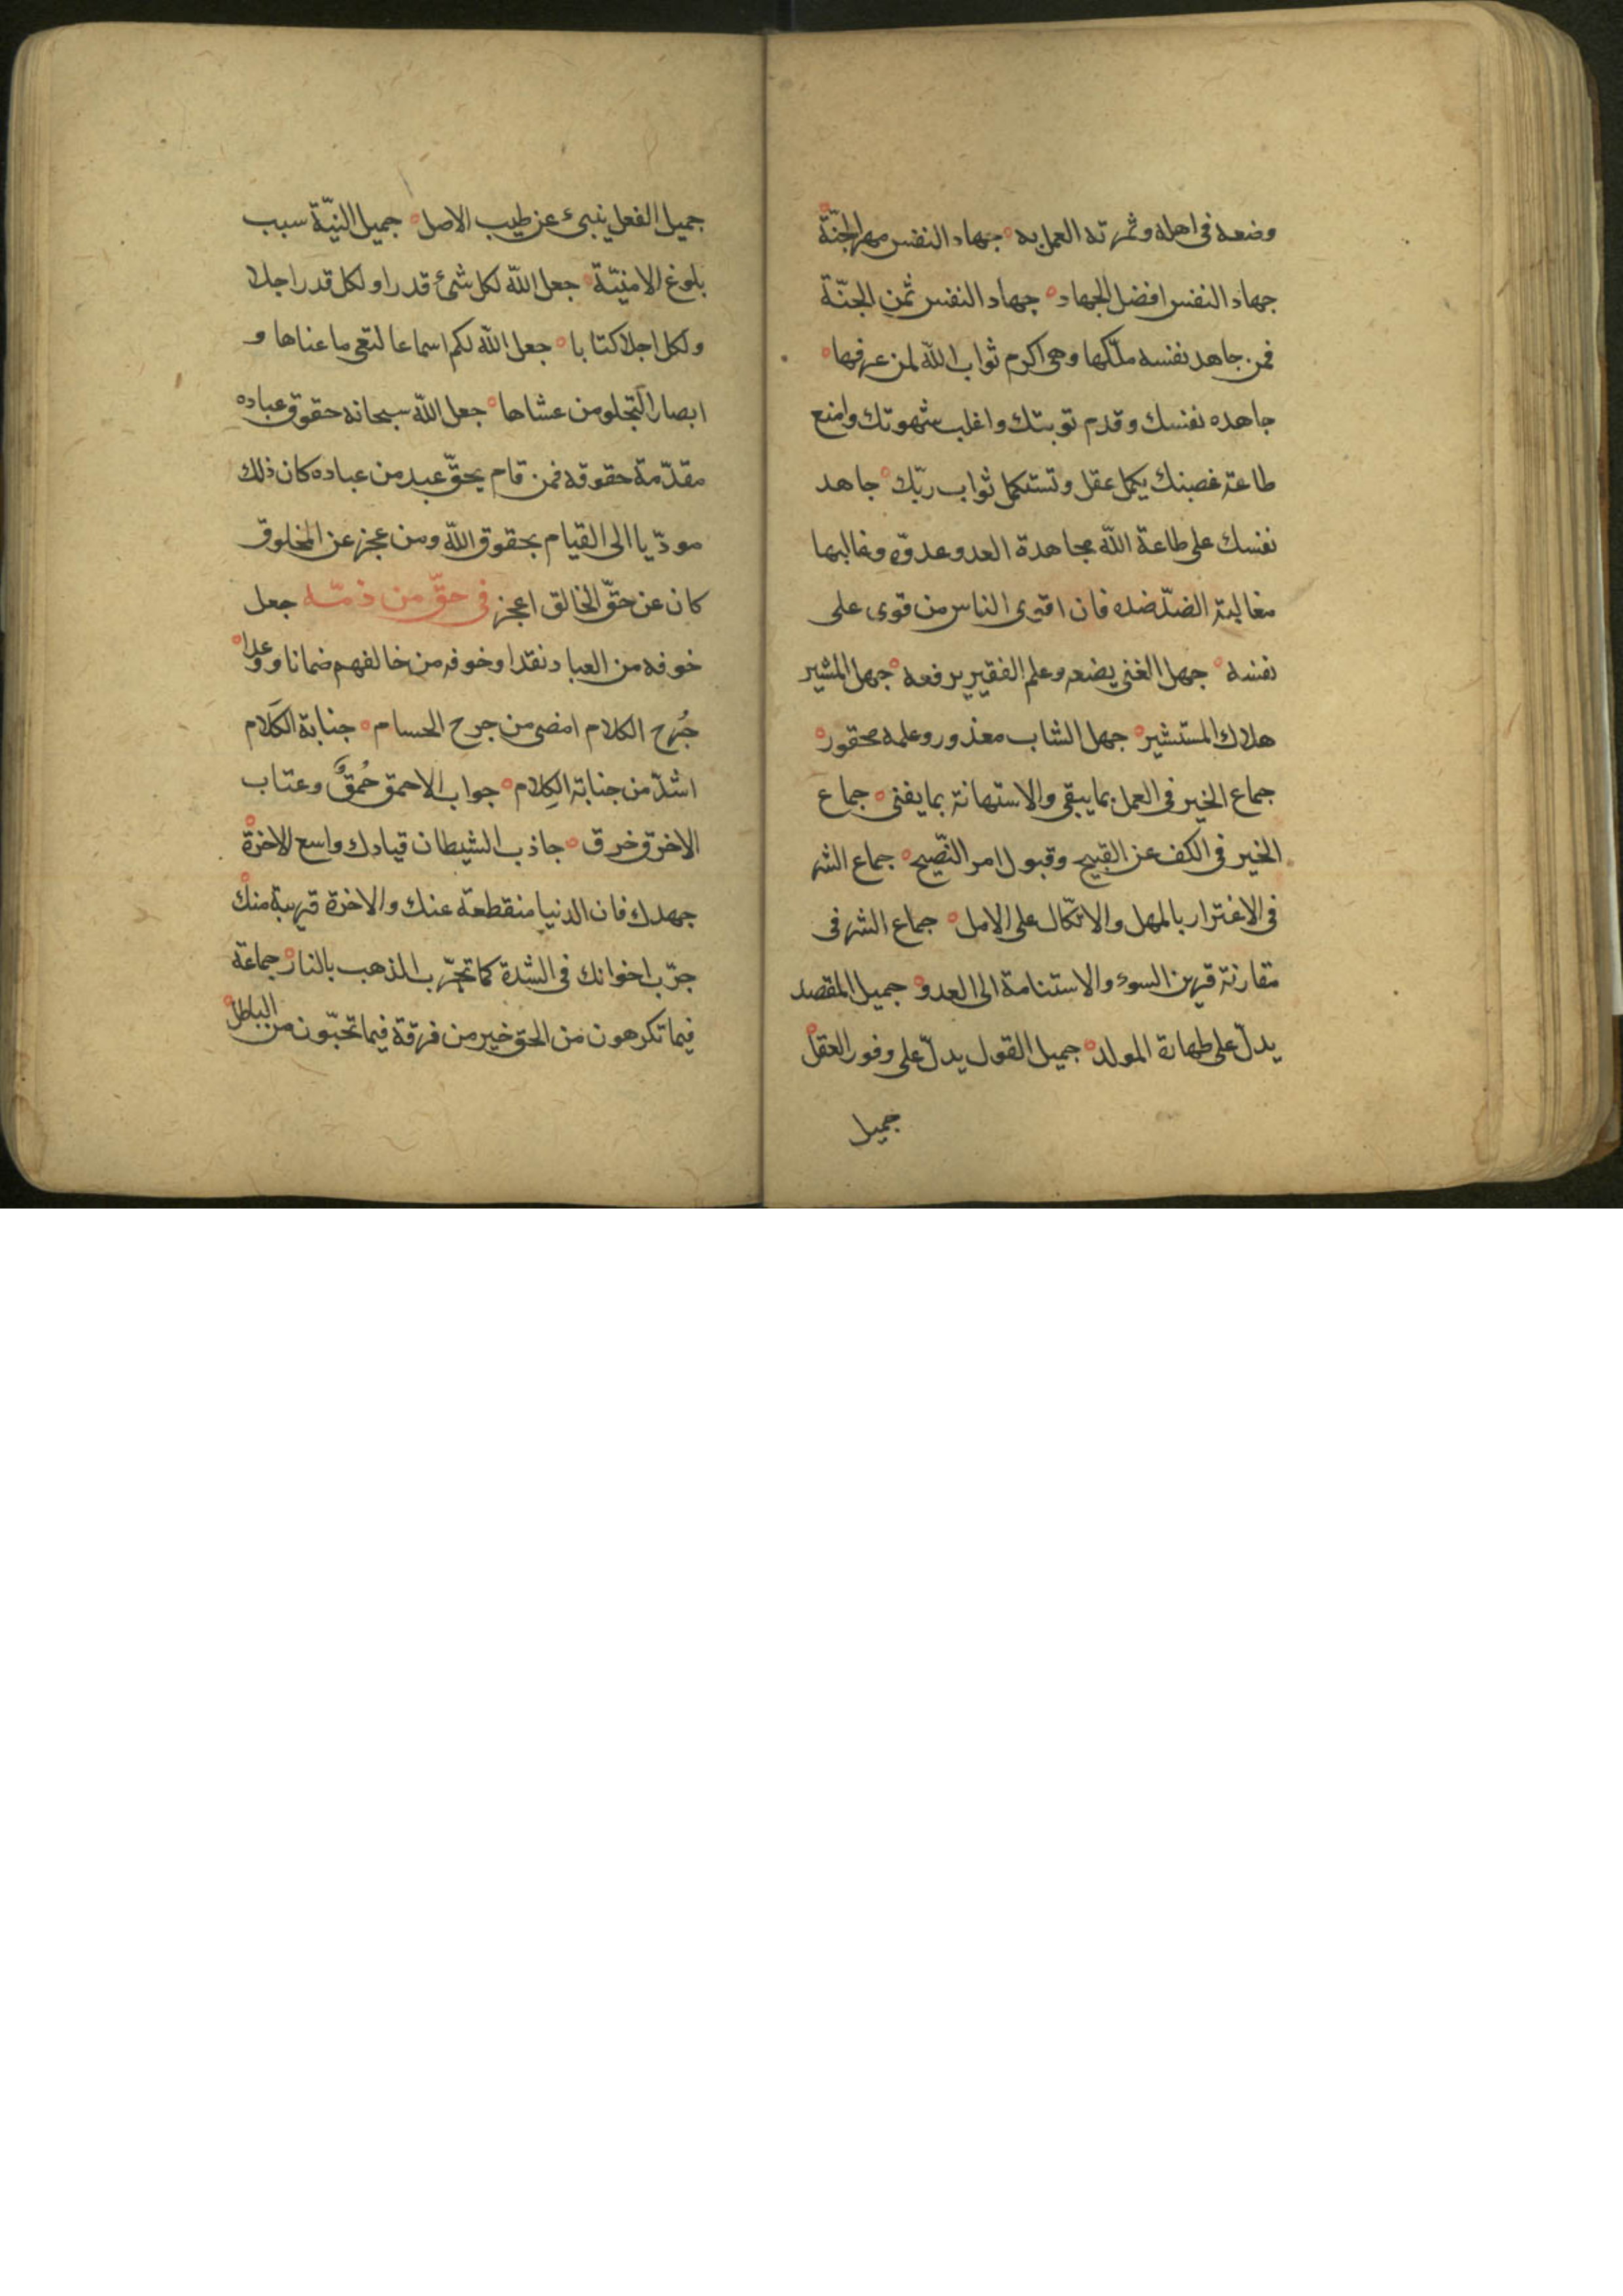 وضعه فى اهله وثمرته العمل به ه جهاد النفس مهر الجنّة ه
جهاد النفس افضل الجهاد ه جهاد النفس ثمن الجنّة
فمن جاهد نفسه ملّكها وهى اكرم ثواب اللّه لمن عرفها ه
جاهده نفسك وقدم توبتك واغلب شهوتك وامنع
طاعة غضبك يكمل عقل وتستكمل ثواب ربّك ه جاهد
نفسك على طاعة اللّه مجاهدة العدو عدوّه وغالبها
مغالبة الضدّ ضده فان اقوى الناس من قوى على
نفسه ه جهل الغنى يضعه وعلم الفقير يرفعه ه جهل المشير
هلاك المستشير ه جهل الشاب معذور وعلمه محقور ه
جماع الخير فى العمل بما يبقى والاستهانة بما يفنى ه جماع
الخير فى الكف عن القبيح وقبول امر النّصيح ه جماع الشر
فى الاغترار بالمهل والاتكّال على الامل ه جماع الشر فى
مقارنة قرين السوء والاستنامة الى العدو ه جميل المقصد
يدلّ على طهارة المولد ه جميل القول يدلّ على وفور العقل ه
جميل
جميل الفعل ينبىء عن طيب الاصل ه جميل النيّة سبب
بلوغ الامنيّة ه جعل اللّه لكل شىء قدرا ولكل قدر اجلا
ولكل اجلا كتابا ه جعل اللّه لكم اسماعا لتعى ما عناها و
ابصارا لتجلو من عشاها ه جعل اللّه سبحانه حقوق عباده
مقدّمة حقوقه فمن قام بحقّ عبد من عباده كان ذلك
مودّيا الى القيام بحقوق اللّه ومن عجز عن المخلوق
كان عن حقّ الخالق اعجز فى حقّ من ذمّه جعل
خوفه من العباد نقدا وخوفه من خالفهم ضمانا ووعدا ه
جُرح الكلام امضى من جرح الحسام ه جنابة الكَلام
اشدّ من جنابة الكِلام ه جواب الاحمق حُمقٌ وعتاب
الاخرق خرق ه جاذب الشيطان قيادك واسع للاخرة ه
جهدك فان الدنيا منقطعة عنك والاخرة قريبة منك ه
جرّب اخوانك فى الشدة كما تجرّب الذهب بالنار ه جماعة
فيما تكرهون من الحق خير من فرقة فيما تحبّون من الباطل ه